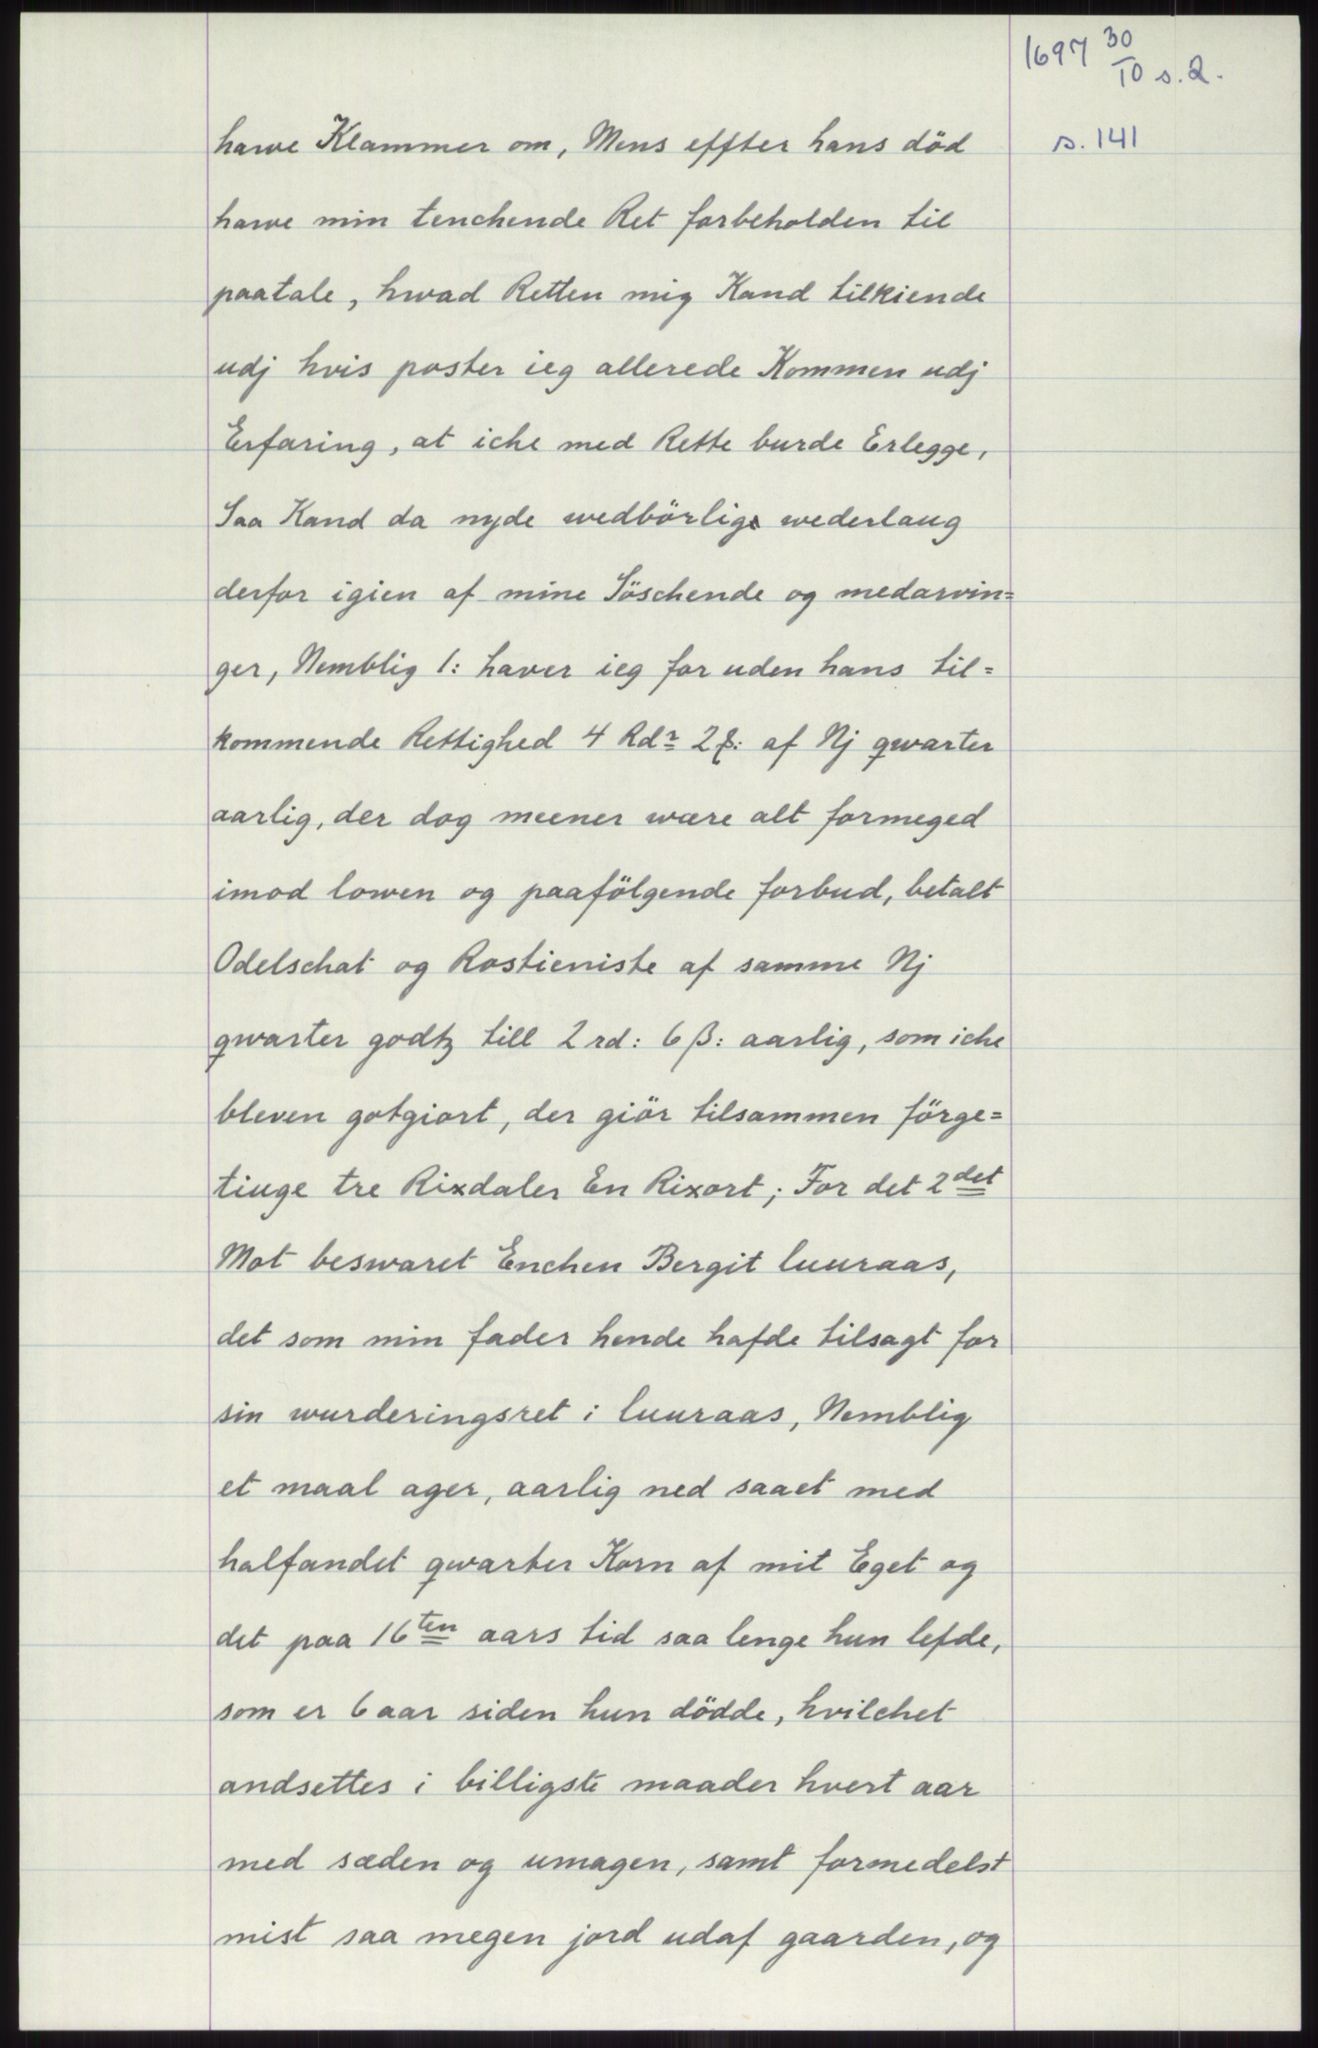 1697 30/10 s. 2.
s. 141
harve Klammer om, Mens effter hans död
harve min tenchende Ret forbeholden til
paatale, hwad Retten mig Kand tilkiende
udj hvis poster ieg allerede Kommen udj
Erfaring, at iche med Rette burde Erlegge,
Saa Kand da nyde wedbörlige wederlaug
derfor igien af mine Söschende og medarvin=
ger, Nemblig 1: haver ieg for uden hans til=
kommende Rettighed 4 Rdr 2 β: af Nj qwarter
aarlig, der dog meener wære alt formeged
imod lowen og paafölgende forbud, betalt
Odelschat og Rostieniste af samme Nj
qwarter godtz till 2 rd: 6 β: aarlig, som iche
bleven gotgiort, der giör tilsammen förge=
tiuge tre Rixdaler En Rixort; For det 2det
Mot beswaret Enchen Bergit luuraas,
det som min fader hende hafde tilsagt for
sin wurderingsret i luuraas, Nemblig
et maal ager, aarlig ned saaet med
halfandet qwarter Korn af mit Eget og
det paa 16ten aars tid saa lenge hun lefde,
som er 6 aar siden hun dödde, hvilchet
andsettes i billigste maader hvert aar
med sæden og umagen, samt formedelst
mist saa megen jord udaf gaarden, og